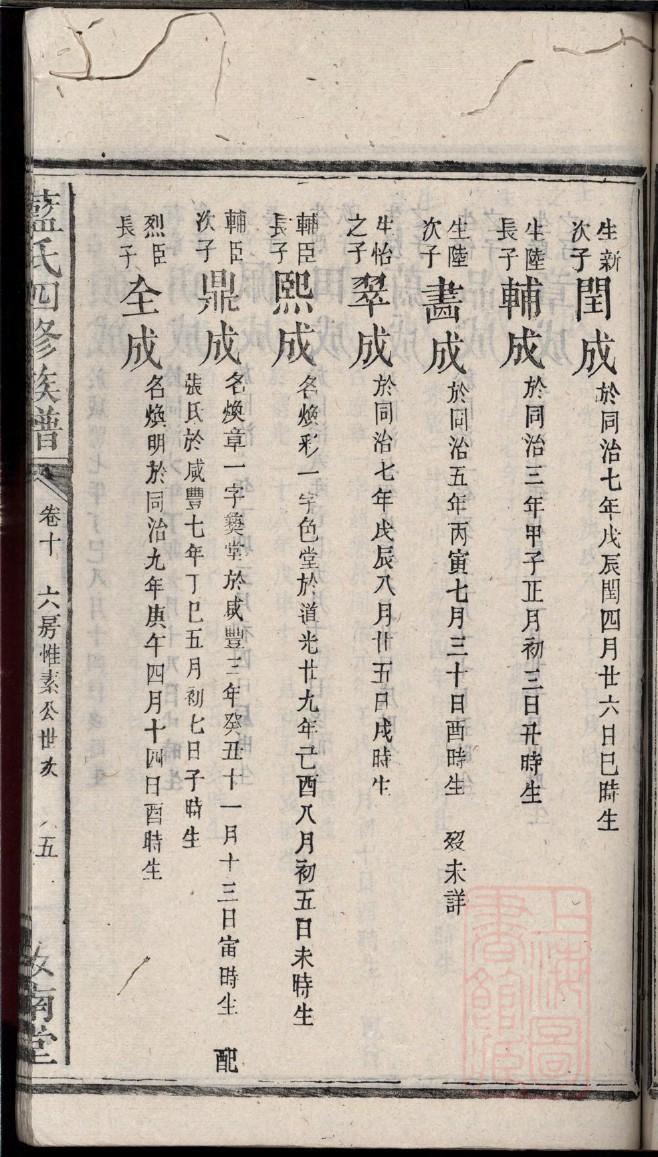 生新次子閏成於同治七年戊辰閏四月廿六日巳時生
生陸長子輔成於同治三年甲子正月初三日丑時生
生陸次子畵成於同治五年丙寅七月三十日酉時生 歿未詳
生怡之子翠成於同治七年戊辰八月廿五日戌時生
輔臣長子熙成名煥彩一字色堂於道光廿九年己酉八月初五日未時生
輔臣次子鼎成名煥章一字奠堂於咸豐三年癸丑十一月十三日寅時生 配
張氏於咸豐七年丁巳五月初七日子時生
烈臣長子全成名煥明於同治九年庚午四月十四日酉時生
藍氏四修族譜 卷十 六房惟素公世次 五 汝南堂
上海圖書館藏